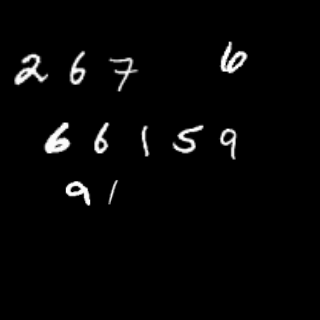 2 6 7 6
6 6 1 5 9
9 1